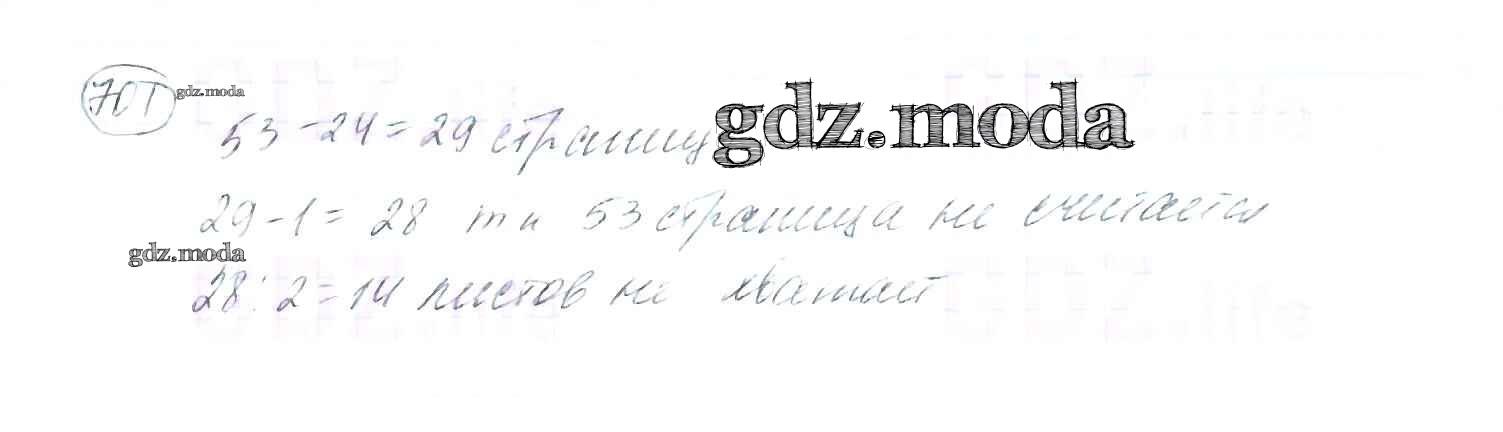 701 gdz.moda
53-24=29 страниц gdz.moda
29-1=28 т к 53 страница не считается
gdz.moda
28:2=14 листов не хватает